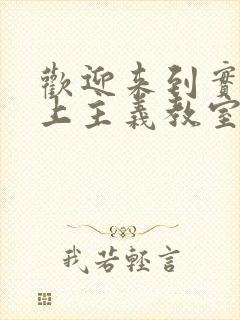 歡迎来到實
上主義教室
我若輕言